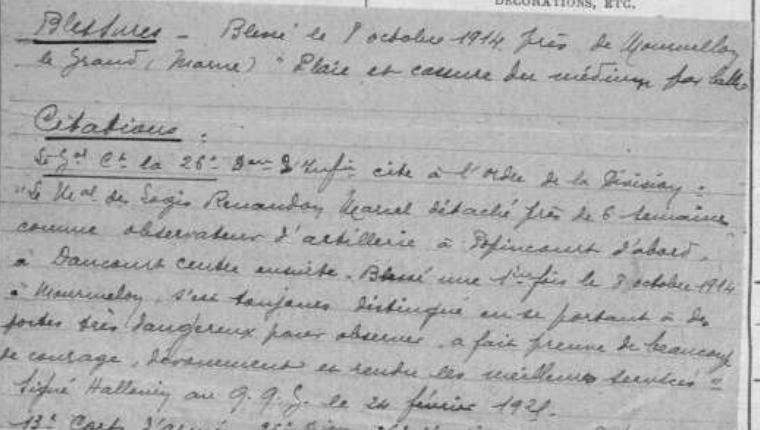 DÉCORATIONS, ETC.
Blessures - Blessé le 8 octobre 1914 près de Mourmelon
le Grand (Marne) "Plaie et cassure du médius par balle
Citations :
Le Gal Ct la 26e Don d'Infie cite à l'ordre de la Division :
"Le Mal des Logis Renaudon Marcel détaché près de 6 semaines
comme observateur d'artillerie à Popincourt d'abord,
à Dancourt centre ensuite. Blessé une 1ère fois le 8 octobre 1914
à Mourmelon, s'est toujours distingué en se portant à des
postes très dangereux pour observer, a fait preuve de beaucoup
de courage, dévouement et rendu les meilleurs services"
Signé Hallouin au Q.G. le 24 février
13e Corps d'armée